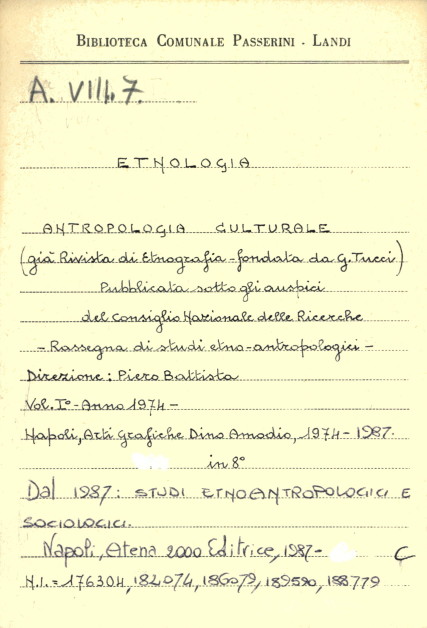 BIBLIOTECA COMUNALE PASSERINI - LANDI
A. VIII. 7.
ETNOLOGIA
ANTROPOLOGIA CULTURALE
(già Rivista di Etnografia - fondata da G. Tucci)
Pubblicata sotto gli auspici
del Consiglio Nazionale delle Ricerche
- Rassegna di studi etno-antropologici -
Direzione: Piero Battista
Vol. I° - Anno 1974 -
Napoli, Arti Grafiche Dino Amodio, 1974 - 1987.
in 8°
Dal 1987: STUDI ETNOANTROPOLOGICI E
SOCIOLOGICI.
Napoli, Atena 2000 Editrice, 1987- C
N.I. = 176304, 182074, 186079, 189590, 188779